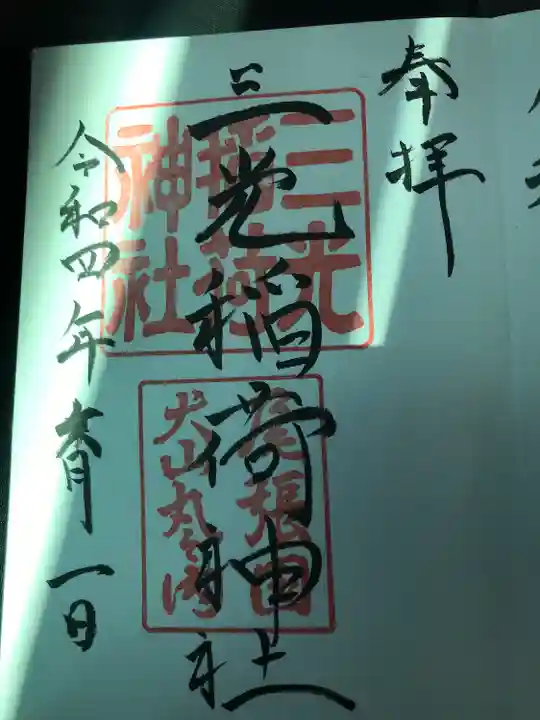 奉拝
三光稲荷神社
三光
稲荷
神社
尾張国
犬山丸之内
令和四年 月一日